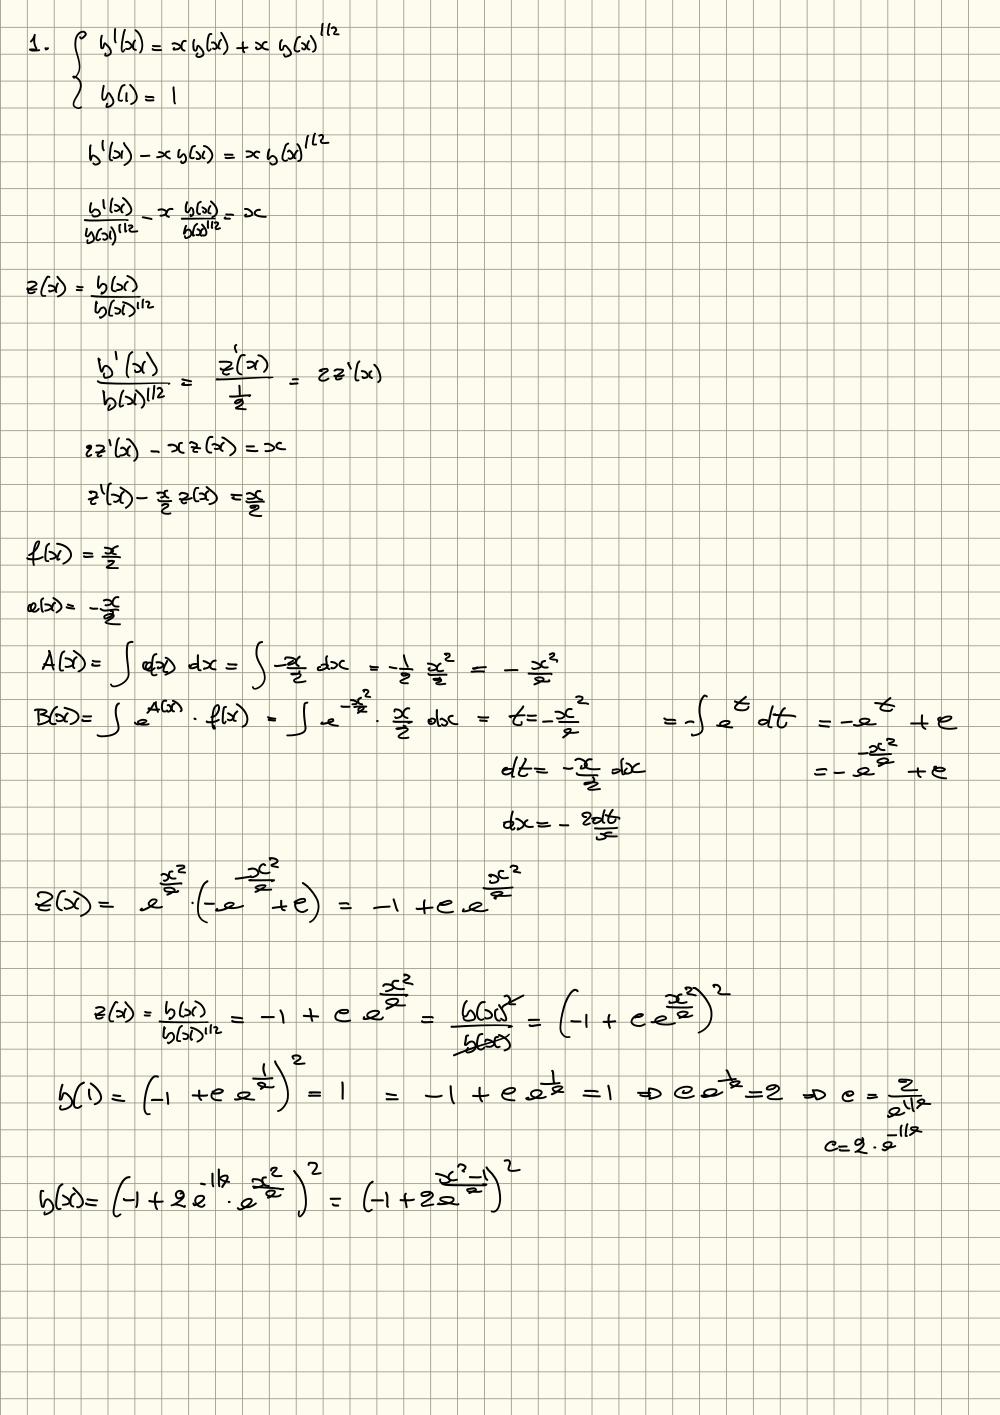 1. { y'(x) = x y(x) + x y(x)^{1/2}
y(1) = 1
y'(x) - x y(x) = x y(x)^{1/2}
\frac{y'(x)}{y(x)^{1/2}} - x \frac{y(x)}{y(x)^{1/2}} = x
z(x) = \frac{y(x)}{y(x)^{1/2}}
\frac{y'(x)}{y(x)^{1/2}} = \frac{z'(x)}{\frac{1}{2}} = 2z'(x)
2z'(x) - x z(x) = x
z'(x) - \frac{x}{2} z(x) = \frac{x}{2}
f(x) = \frac{x}{2}
a(x) = -\frac{x}{2}
A(x) = \int a(x) dx = \int -\frac{x}{2} dx = -\frac{1}{2} \frac{x^2}{2} = -\frac{x^2}{2}
B(x) = \int e^{A(x)} \cdot f(x) = \int e^{-\frac{x^2}{2}} \cdot \frac{x}{2} dx = t = -\frac{x^2}{2} = -\int e^t dt = -e^t + c
dt = -\frac{x}{2} dx = -e^{-\frac{x^2}{2}} + c
dx = -\frac{2dt}{x}
z(x) = e^{\frac{x^2}{2}} \cdot (-e^{-\frac{x^2}{2}} + c) = -1 + c e^{\frac{x^2}{2}}
z(x) = \frac{y(x)}{y(x)^{1/2}} = -1 + c e^{\frac{x^2}{2}} = \frac{y(x)^2}{y(x)} = (-1 + c e^{\frac{x^2}{2}})^2
y(1) = (-1 + c e^{\frac{1}{2}})^2 = 1 = -1 + c e^{\frac{1}{2}} = 1 ⇒ c e^{\frac{1}{2}} = 2 ⇒ c = \frac{2}{e^{1/2}}
c = 2 \cdot e^{-1/2}
y(x) = (-1 + 2 e^{-1/2} \cdot e^{\frac{x^2}{2}})^2 = (-1 + 2 e^{\frac{x^2-1}{2}})^2